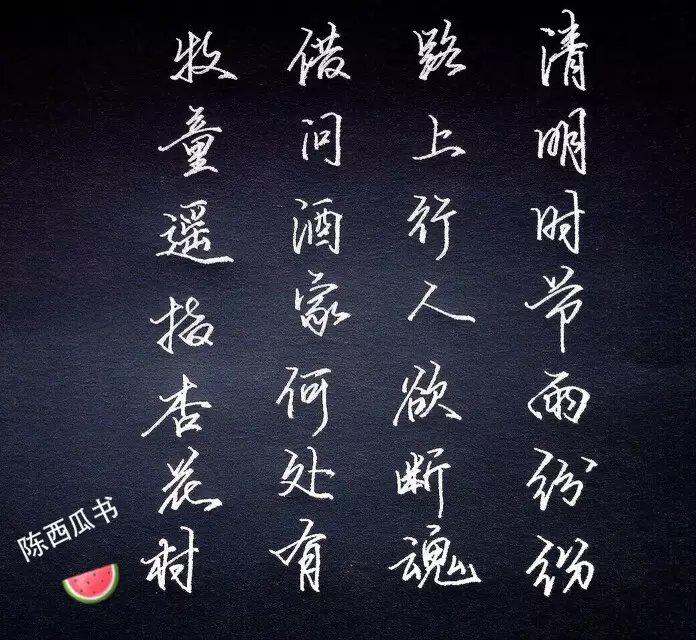 清明时节雨纷纷
路上行人欲断魂
借问酒家何处有
牧童遥指杏花村
陈西瓜书